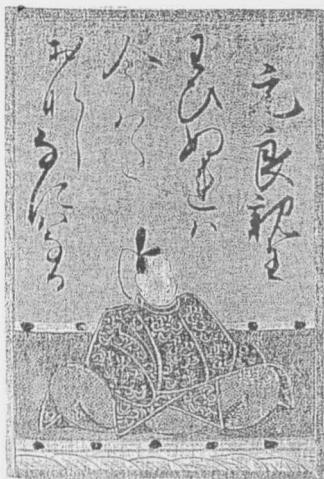 元良親王
わひぬれハ
今はた
おなしなにハなる